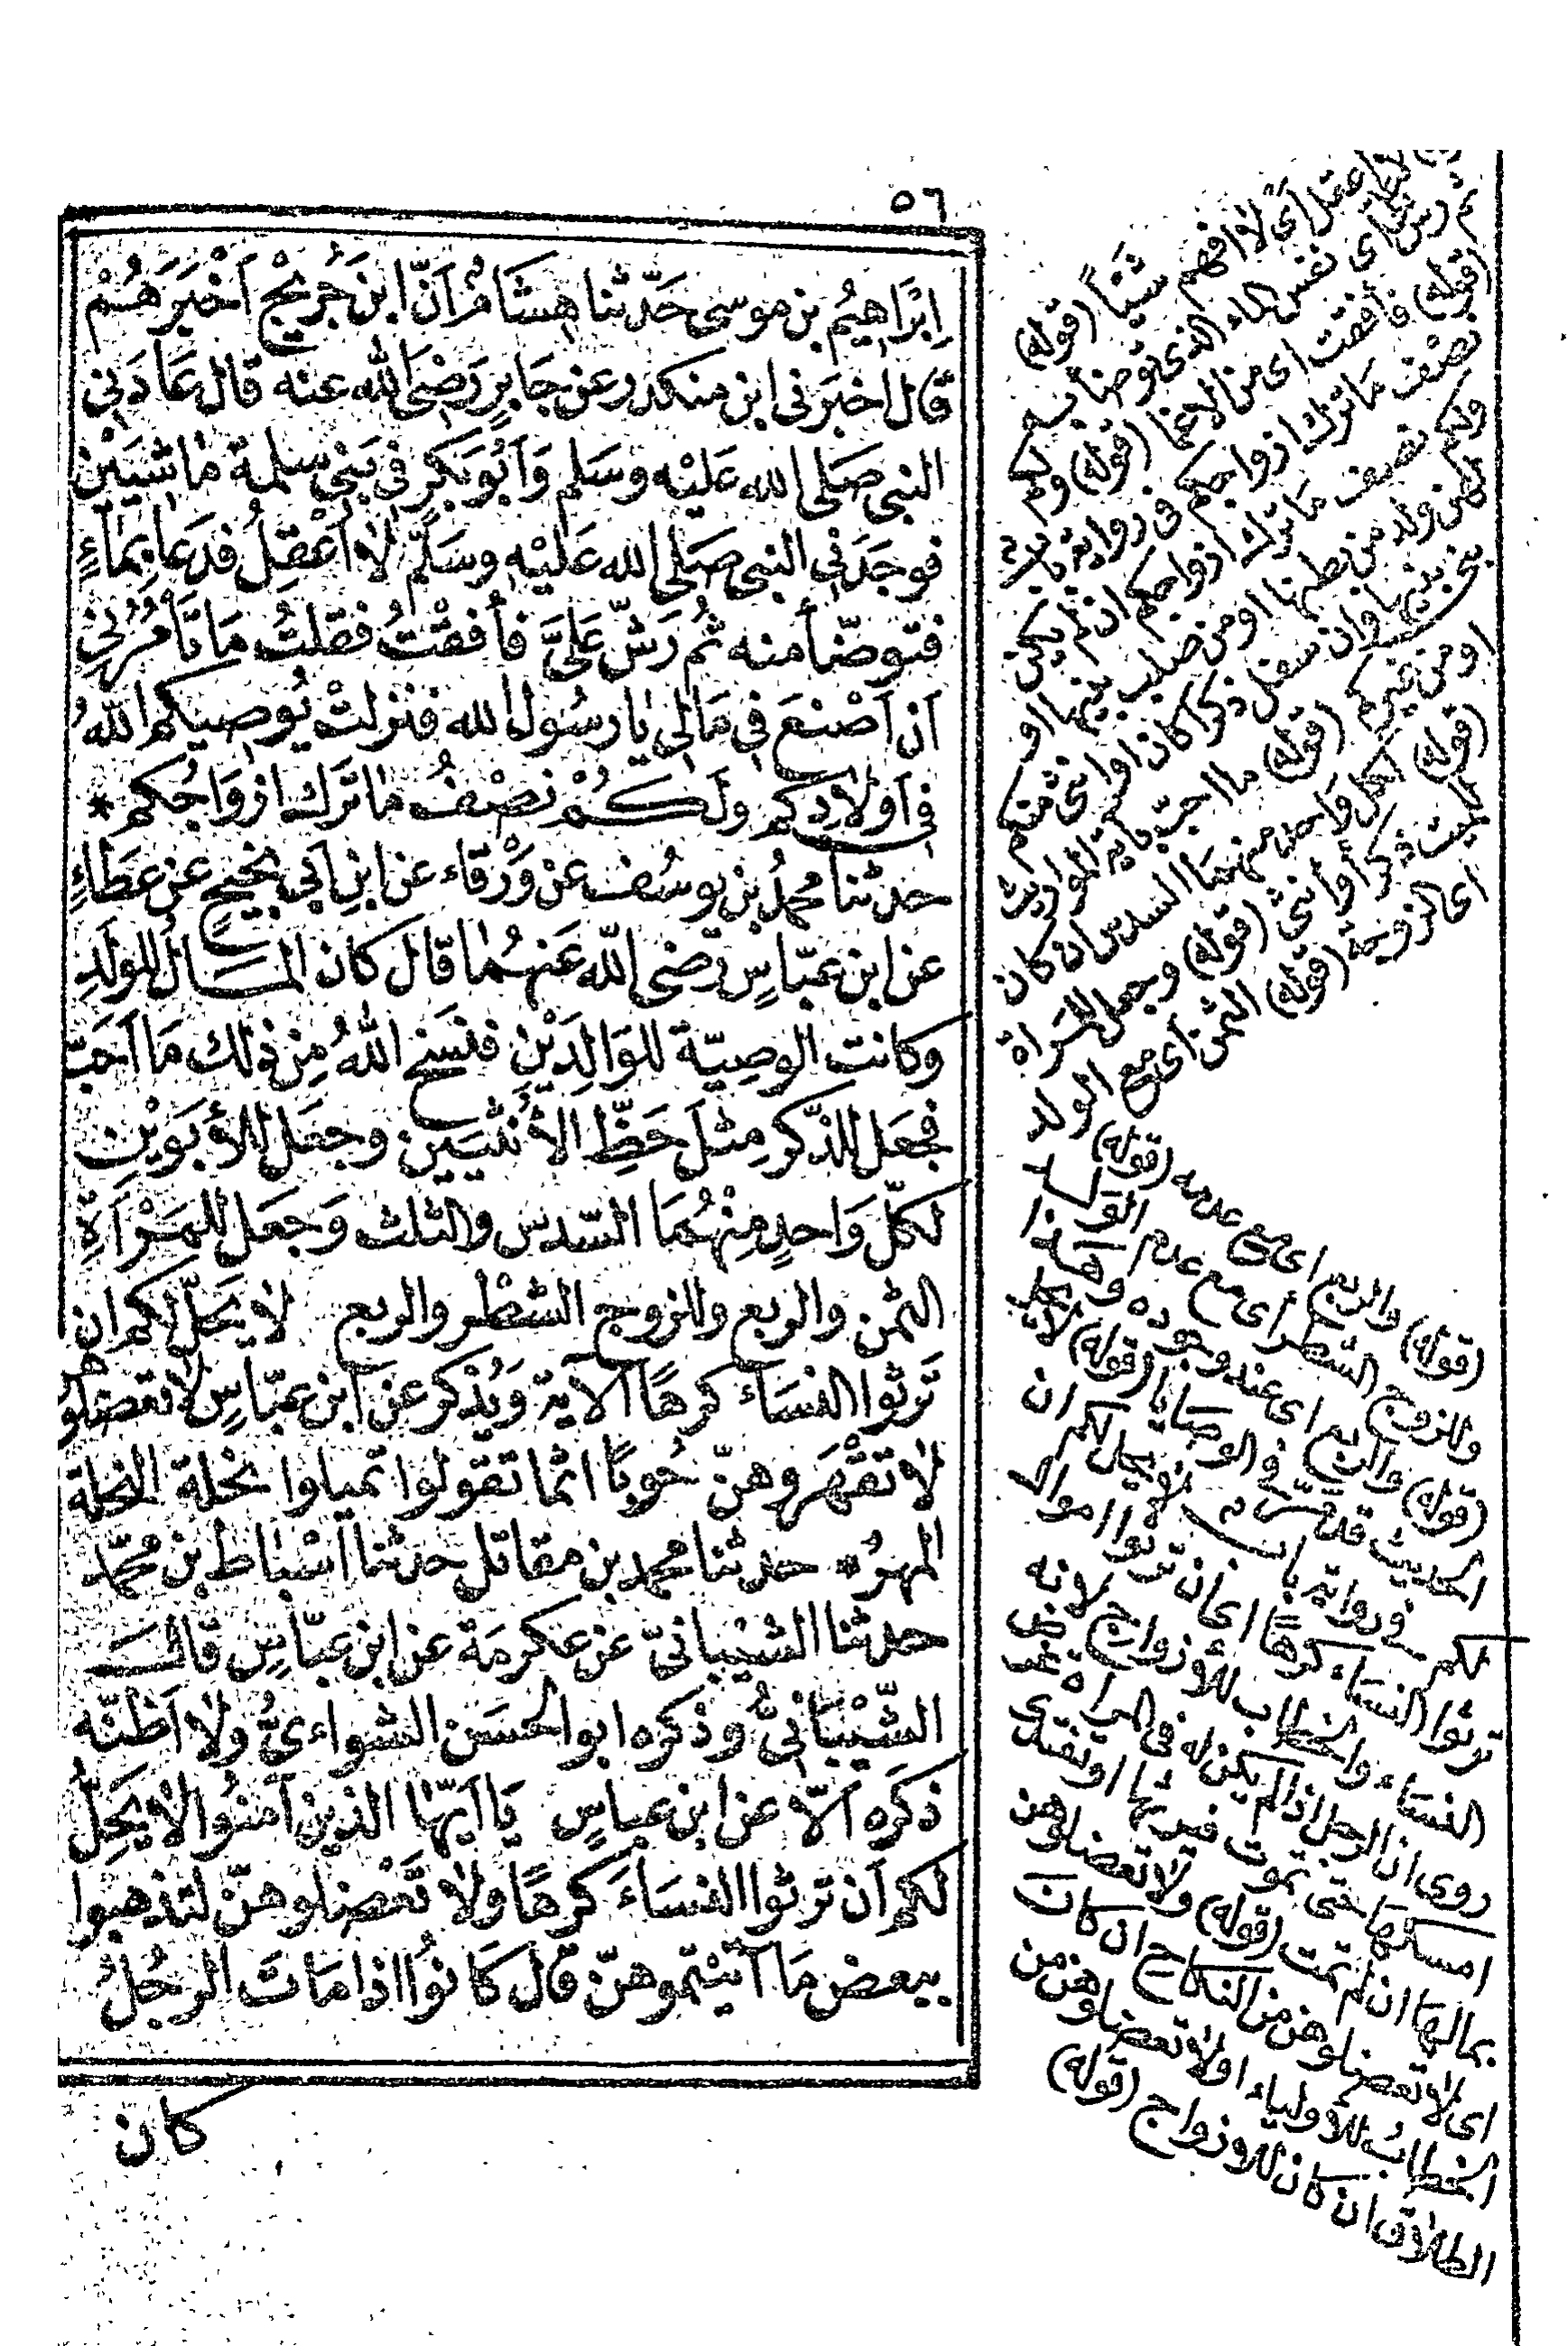 ٥٦
اِبْرَاهِيمُ بن موسى حَدّثنا هِشَامُ اَنّ ابنَ جُرَيْجٍ اَخْبَرَهُمْ
قال اخبَرَنى ابن منكدر عن جَابِرٍ رَضِىَ الله عنه قال عَادَنِى
النبى صَلى الله عَلَيْه وسَلم وَاَبُوبَكرٍ فِى بَنِى سلمة مَاشِيَيْنِ
فوجَدَنِى النبى صَلى الله عَليْه وسَلّم لا اَعْقِلُ فدَعَا بِمَاءٍ
فتوضّأ منه ثُم رَشّ عَلَىَّ فأفقْتُ فقلتُ مَا تَأمُرُنِى
اَن اَصْنعَ فِى مَالِى يَا رسُول الله فنزلتْ يُوصيكم اللهُ
فى اَولادِكم ولَكُمْ نصْفُ مَا تَرَك ازوَاجُكم *
حدثنا محمدُ بن يوسُف عن وَرْقاء عن ابنِ ابى نجيحٍ عن عَطَاءٍ
عن ابن عبّاسٍ رَضى الله عَنهُمَا قَال كَان المَالُ للولَدِ
وكانت الوصِيّة للوَالِدَيْنِ فنسَخ اللهُ مِن ذلك مَا اَحَبّ
فجعَل للذّكَرِ مِثلَ حَظّ الأُنثَيَيْن وجعَل للأبَوَيْنِ
لكلّ وَاحدٍ مِنْهُمَا السّدس والثلث وَجعَل للمَرْاَةِ
الثمن والربع وللزوج الشطْر والربع لا يَحَلّ لكم ان
تَرِثُوا النسَاءَ كَرهًا الآية وَيُذكر عن ابن عبّاسٍ لا تعضلوهن
لا تقْهَروهنّ حُوبًا اثمًا تقولوا تميلوا نحلة النحلة
المهرُ * حدثنا محمد بن مقاتل حدثنا اسْبَاط بن محمّد
حدثنا الشيْبانىّ عن عكرمَة عن ابن عبّاسٍ قال
الشّيْبَانىُّ وذكره ابو الحسَن السّواءىُّ ولا اَظنّه
ذكَره الاّ عن ابن عباسٍ يَا ايّها الذين آمنُوا لا يَحَلُّ
لكم اَن ترثوا النسَاءَ كَرهًا ولا تَعْضلوهنّ لتذهبوا
ببعض مَا آتيْتموهنّ قال كَانوُا اذا مَاتَ الرجُلُ
كان
لا اعقل اى لا افهم شيئا (قوله)
ثم رش على اى نفس الماء الذى توضأ به
(قوله) فأفقت اى من الاغما (قوله) ولكم
نصف ما ترك ازواجكم فى رواية باب
ولكم نصف ما ترك ازواجكم ان لم يكن
لهن ولد من بطنها او من صلب بنيها او
بنى بنيها وان سفل ذكرا كان او انثى منكم
او من غيركم (قوله) ما احب باية المواريث
(قوله) لكل واحد منهما السدس ان كان
للميت ذكرا او انثى (قوله) وجعل للمراة
اى الزوجة (قوله) الثمن اى مع الولد
(قوله) والربع اى مع عدمه (قوله)
وللزوج الشطر اى مع عدم الولد
(قوله) والربع اى عند وجوده وهذا
الحديث قد مر فى الوصايا (قوله) لا يحل
لكم فى رواية باب لا يحل لكم ان
ترثوا النساء كرها اى ان ترثوا اموال
النساء والخطاب للأزواج لانه
روى ان الرجل اذا لم يكن له فى المراة غرض
امسكها حتى تموت فيرثها او تفتدى
بمالها ان لم تمت (قوله) ولا تعضلوهن
اى لا تعضلوهن من النكاح ان كان
الخطاب للأولياء او لا تعضلوهن من
الطلاق ان كان للازواج (قوله)